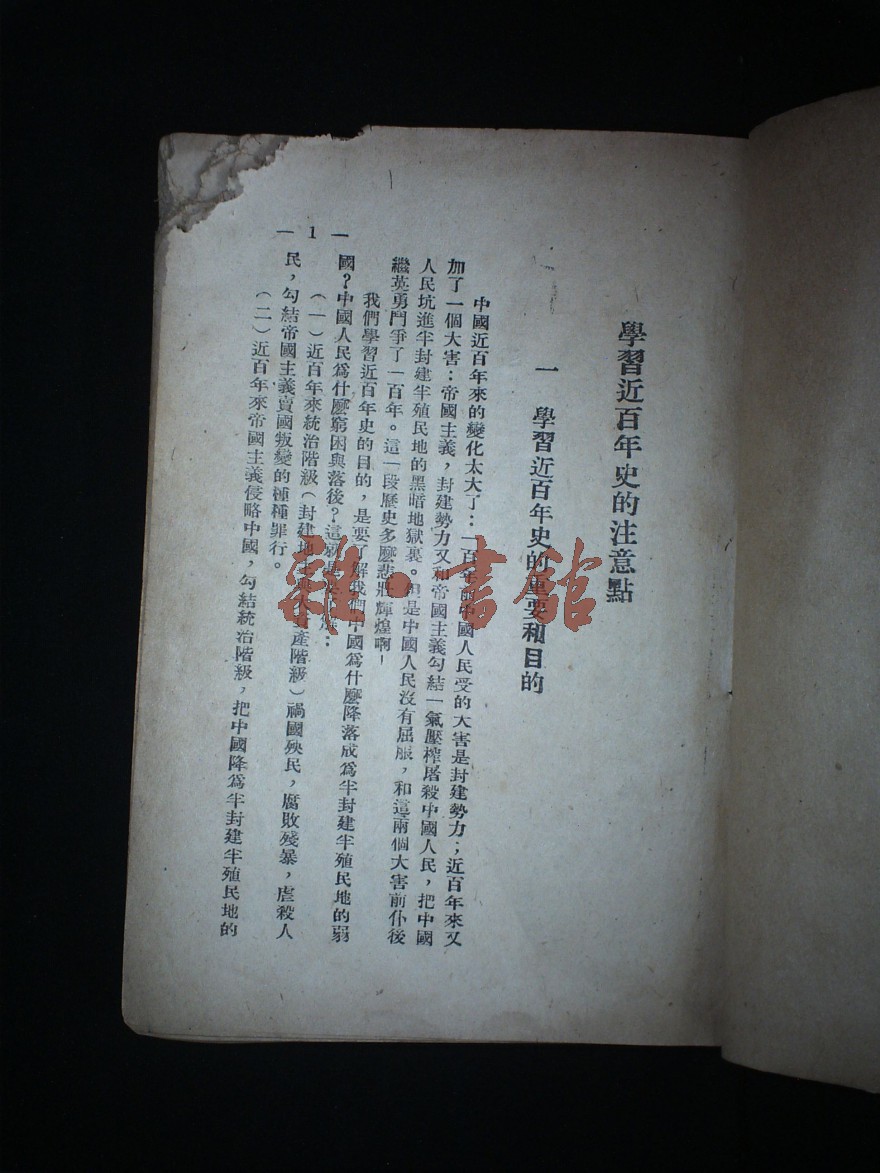 學習近百年史的注意點
一 學習近百年史的重要和目的
中國近百年來的變化太大了：一百年前中國人民受的大害是封建勢力；近百年來又
加了一個大害：帝國主義，封建勢力又和帝國主義勾結一氣壓榨屠殺中國人民，把中國
人民坑進半封建半殖民地的黑暗地獄裏。但是中國人民沒有屈服，和這兩個大害前仆後
繼英勇鬥爭了一百年。這一段歷史多麼悲壯輝煌啊！
我們學習近百年史的目的，是要了解我們中國爲什麼降落成爲半封建半殖民地的弱
國？中國人民爲什麼窮困與落後？這就是
（一）近百年來統治階級（封建地主與大資產階級）禍國殃民，腐敗殘暴，虐殺人
民，勾結帝國主義賣國叛變的種種罪行。
（二）近百年來帝國主義侵略中國，勾結統治階級，把中國降爲半封建半殖民地的
— 1 —
雜·書館